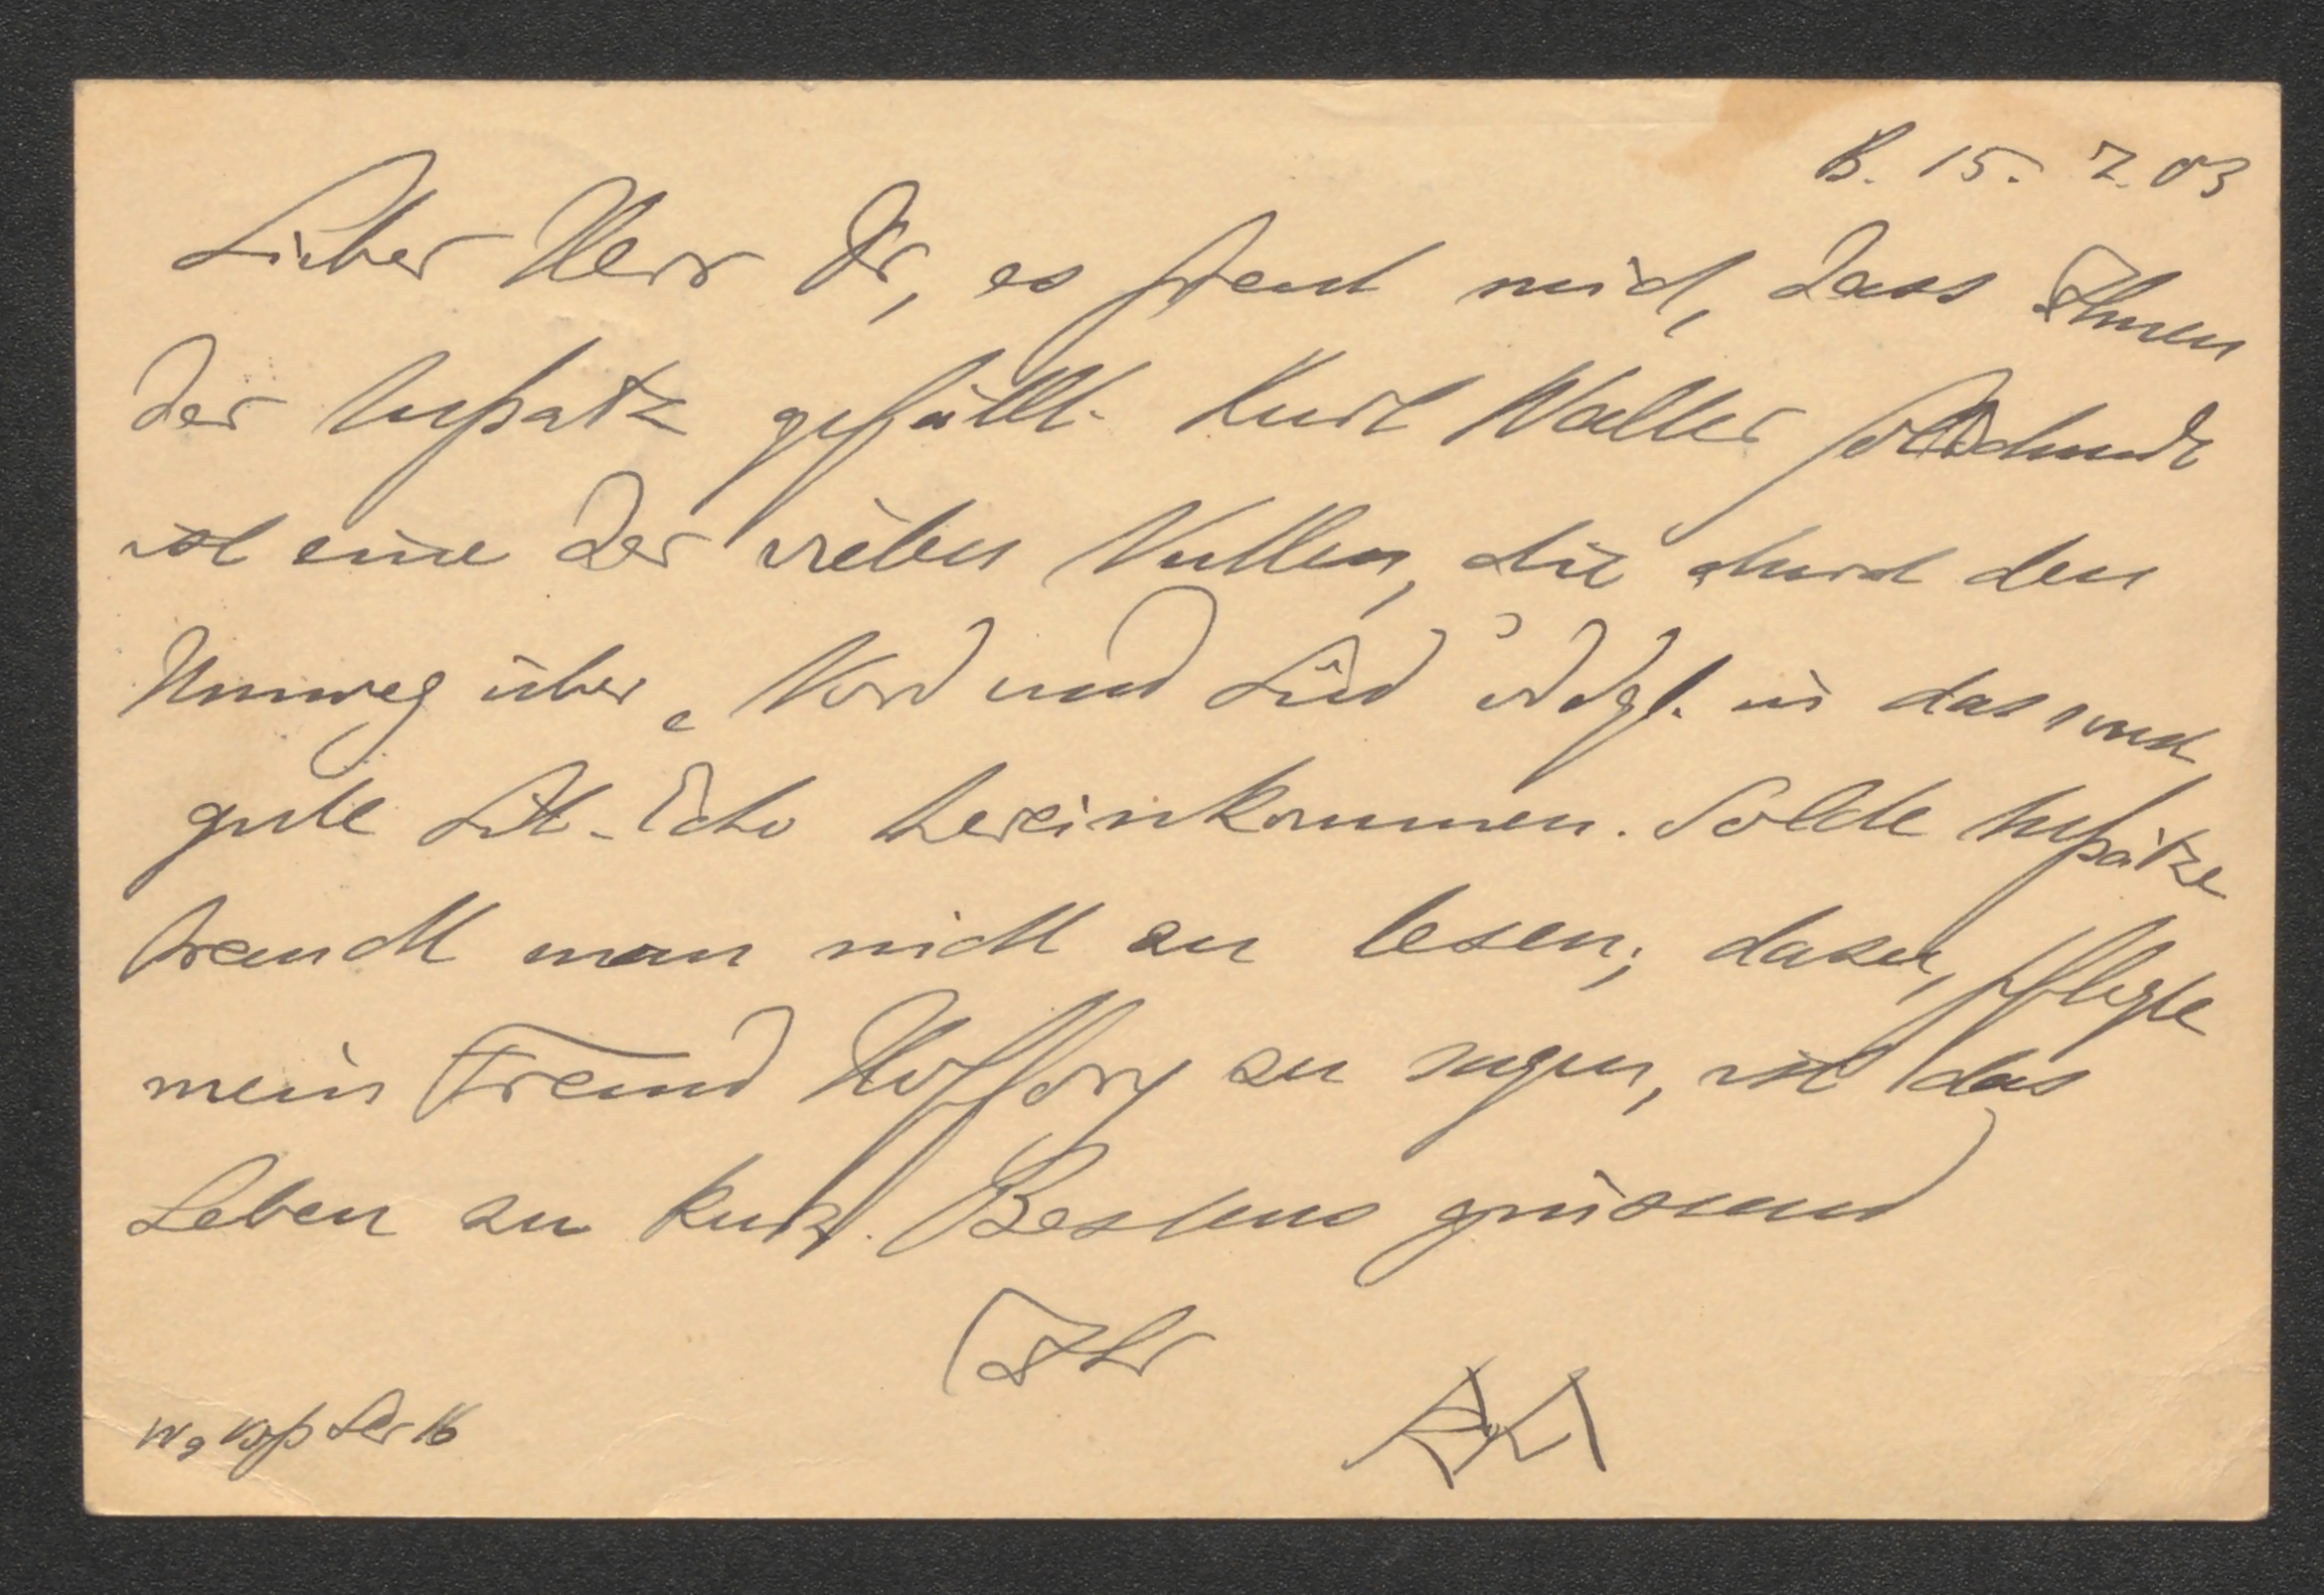 B. 15. 7. 03
Lieber Herr Dr, es freut mich, dass Ihnen
der Aufsatz gefällt. Kurt Walter
ist eine der vielen Nullen, die durch den
Umweg über „Nord und Süd" od dgl. in das sonst
gute Lit-Echo hereinkommen. Solche Aufsätze
braucht man nicht zu lesen; dazu, pflegte
mein Freund Hoffory zu sagen, ist das
Leben zu kurz. Bestens grüssend
Ihr